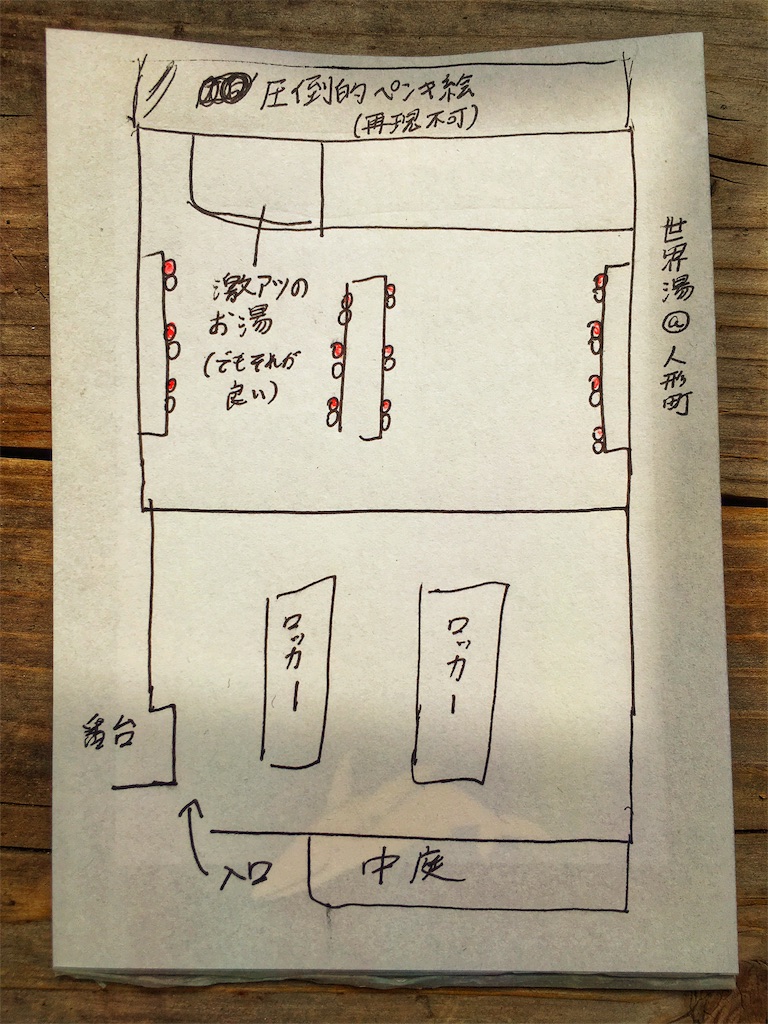 圧倒的ペンキ絵
(再現不可)
世界湯@人形町
激アツの
お湯
(でもそれが
良い)
ロッカー
ロッカー
番台
入口
中庭